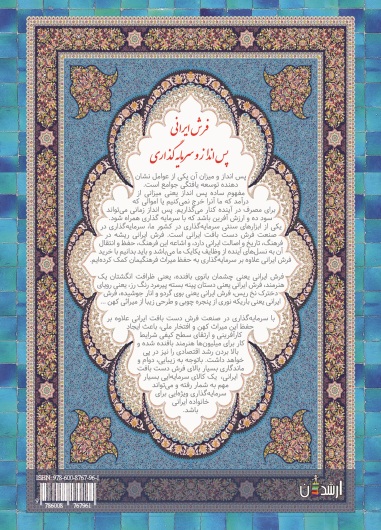 فرش ایرانی
پس انداز و سرمایه‌گذاری
پس انداز و میزان آن یکی از عوامل نشان
دهنده توسعه یافتگی جوامع است.
مفهوم ساده پس انداز یعنی میزانی از
درآمد که ما آنرا خرج نمی‌کنیم یا اموالی که
برای مصرف در آینده کنار می‌گذاریم. پس انداز زمانی می‌تواند
سود ده و ارزش آفرین باشد که با سرمایه گذاری همراه شود.
یکی از ابزارهای سنتی سرمایه‌گذاری در کشور ما، سرمایه‌گذاری در
صنعت فرش دست بافت ایرانی است. فرش ایرانی ریشه در
فرهنگ، تاریخ و اصالت ایرانی دارد، و اشاعه این فرهنگ، حفظ و انتقال
آن به نسل‌های آینده از وظایف یکایک ما می‌باشد و باید بدانیم با خرید
فرش ایرانی علاوه بر سرمایه‌گذاری به حفظ میراث فرهنگیمان کمک کرده‌ایم.
فرش ایرانی یعنی چشمان بانوی بافنده، یعنی ظرافت انگشتان یک
هنرمند، فرش ایرانی یعنی دستان پینه بسته پیرمرد رنگ رز، یعنی رویای
دخترک نخ ریس، فرش ایرانی یعنی بوی گردو و انار جوشیده، فرش
ایرانی یعنی باریکه نوری از پنجره چوبی و طرحی زیبا از میراثی کهن.
با سرمایه گذاری در صنعت فرش دست بافت ایرانی علاوه بر
حفظ این میراث کهن و افتخار ملی، باعث ایجاد
کارآفرینی و ارتقای سطح کیفی شرایط
کار برای میلیون‌ها هنرمند بافنده شده و
بالا بردن رشد اقتصادی را نیز در پی
خواهد داشت. باتوجه به زیبایی، دوام و
ماندگاری بسیار بالای فرش دست بافت
ایرانی، یک کالای سرمایه‌ایی بسیار
مهم به شمار رفته و می‌تواند
سرمایه‌گذاری ویژه‌ایی برای
خانواده ایرانی
باشد.
ISBN: 978-600-8767-96-1
786008 767961
ارشدان